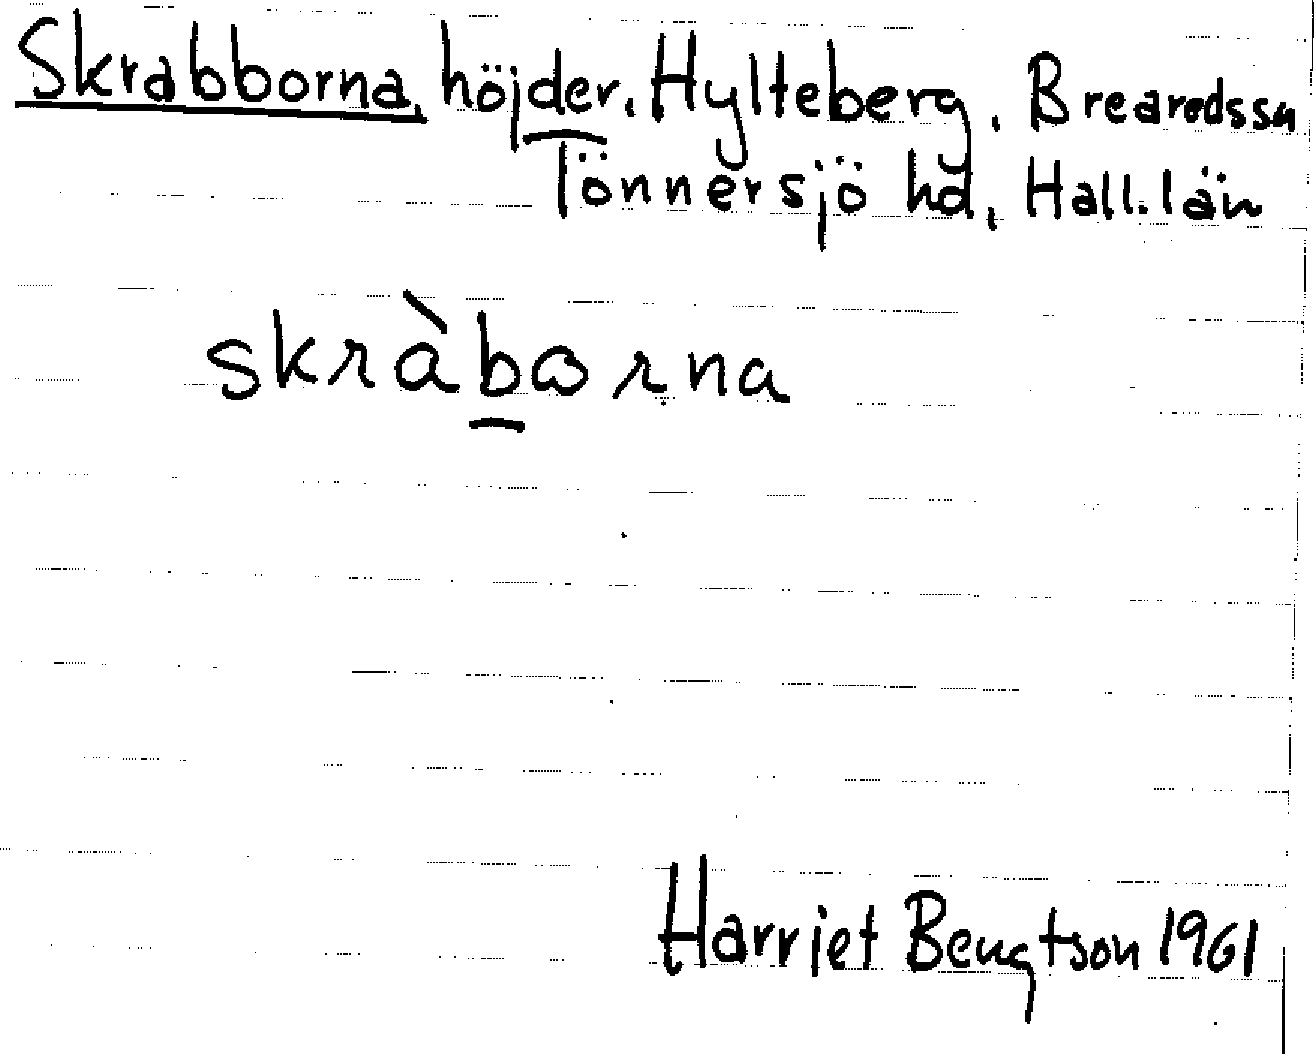 Skrabborna, höjder, Hylteberg, Brearedssn
Tönnersjö hd, Hall. län
skràbɷrna
Harriet Bengtson 1961